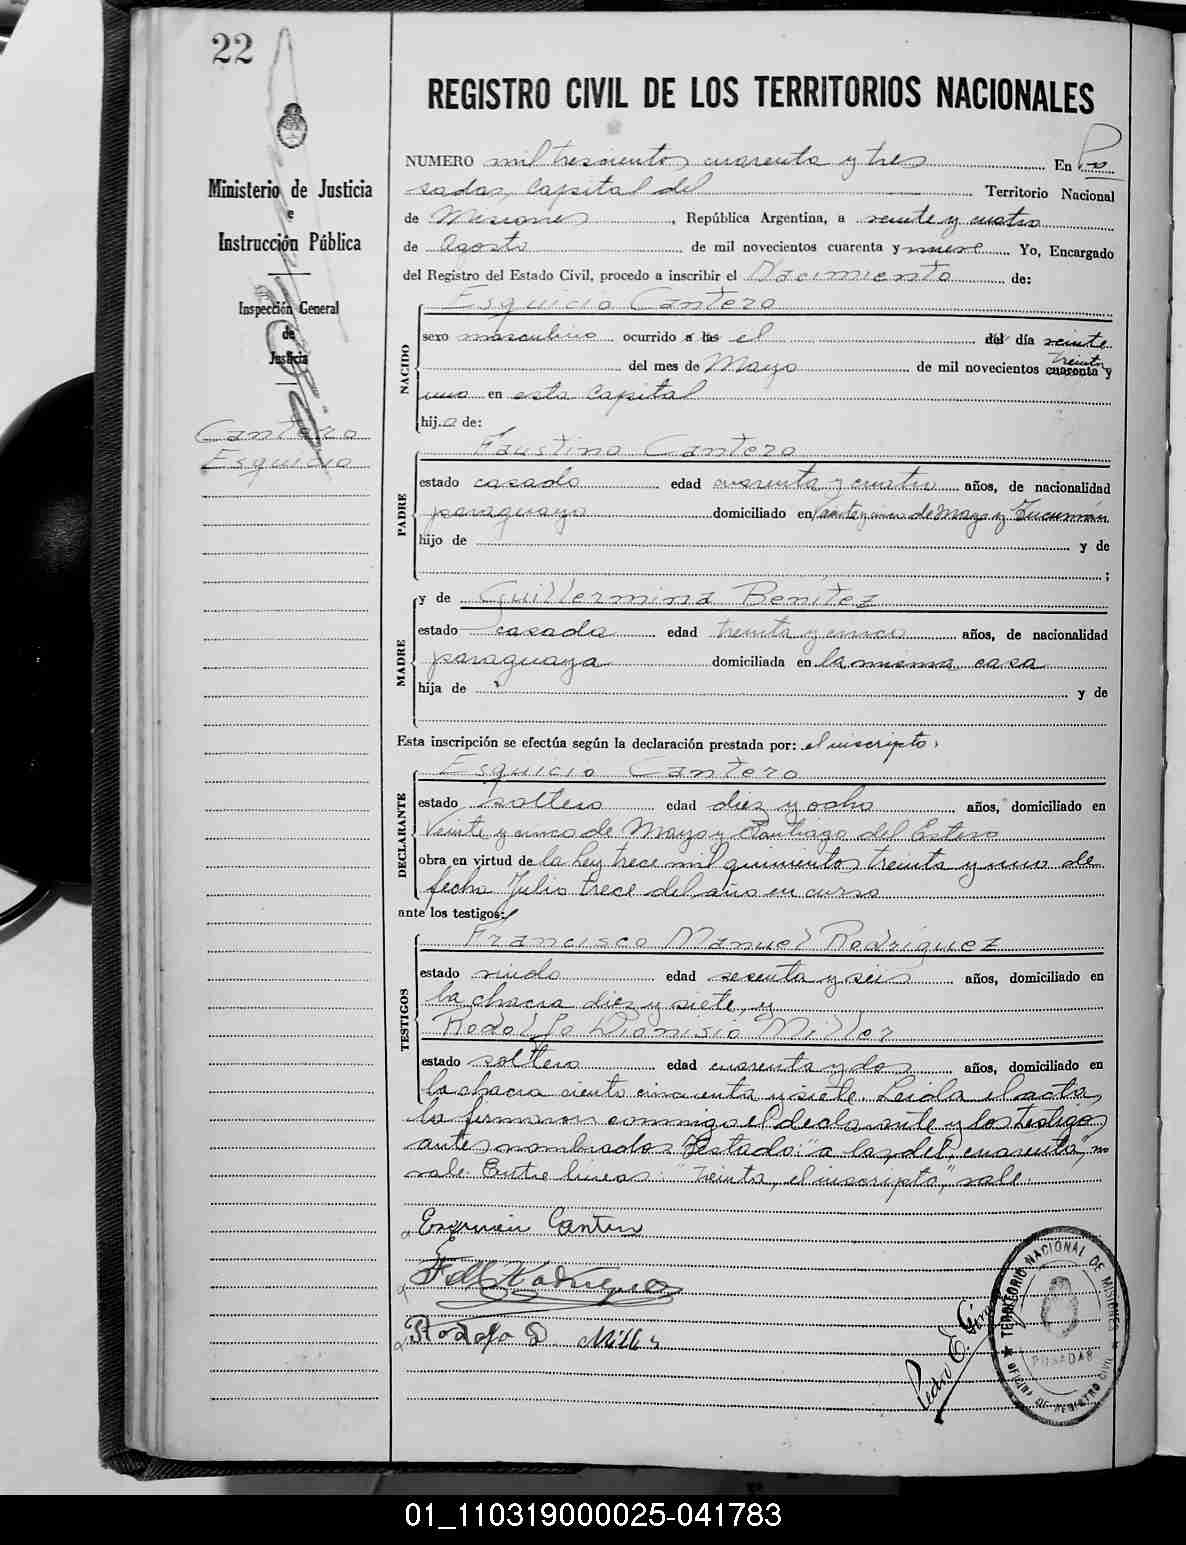 22
REGISTRO CIVIL DE LOS TERRITORIOS NACIONALES
Ministerio de Justicia
e
Instrucción Pública
Inspección General
de
Justicia
Cantero
Esquicio
NUMERO mil trescientos cuarenta y tres En Po
sadas, Capital del Territorio Nacional
de Misiones, República Argentina, a veinte y cuatro
de Agosto de mil novecientos cuarenta y nueve Yo, Encargado
del Registro del Estado Civil, procedo a inscribir el Nacimiento de:
Esquicio Cantero
NACIDO
sexo masculino ocurrido a las el del día veinte
del mes de Mayo de mil novecientos cuarenta y treinta
uno en esta Capital
hijo de:
Faustino Cantero
PADRE
estado casado edad cuarenta y cuatro años, de nacionalidad
paraguayo domiciliado en Veinte y cinco de Mayo y Tucumán
hijo de y de
;
y de Guillermina Benítez
MADRE
estado casada edad treinta y cinco años, de nacionalidad
paraguaya domiciliada en la misma casa
hija de y de
Esta inscripción se efectúa según la declaración prestada por: el inscripto,
Esquicio Cantero
DECLARANTE
estado soltero edad diez y ocho años, domiciliado en
Veinte y cinco de Mayo y Santiago del Estero
obra en virtud de la Ley trece mil quinientos treinta y uno de
fecha Julio trece del año en curso
ante los testigos:
Francisco Manuel Rodríguez
TESTIGOS
estado viudo edad sesenta y seis años, domiciliado en
la chacra diez y siete, y
Rodolfo Dionisio Miller
estado soltero edad cuarenta y dos años, domiciliado en
la chacra ciento cincuenta y siete. Leída el acta,
la firmaron conmigo el declarante y los testigos
antes nombrados. Testado: "a las, del, cuarenta," no
vale. Entre líneas: "treinta, el inscripto," vale.
Cantero
F M Rodriguez
Rodolfo D. Miller
Pedro E.
TERRITORIO NACIONAL DE MISIONES
POSADAS
OFICINA DE REGISTRO CIVIL
01_110319000025-041783